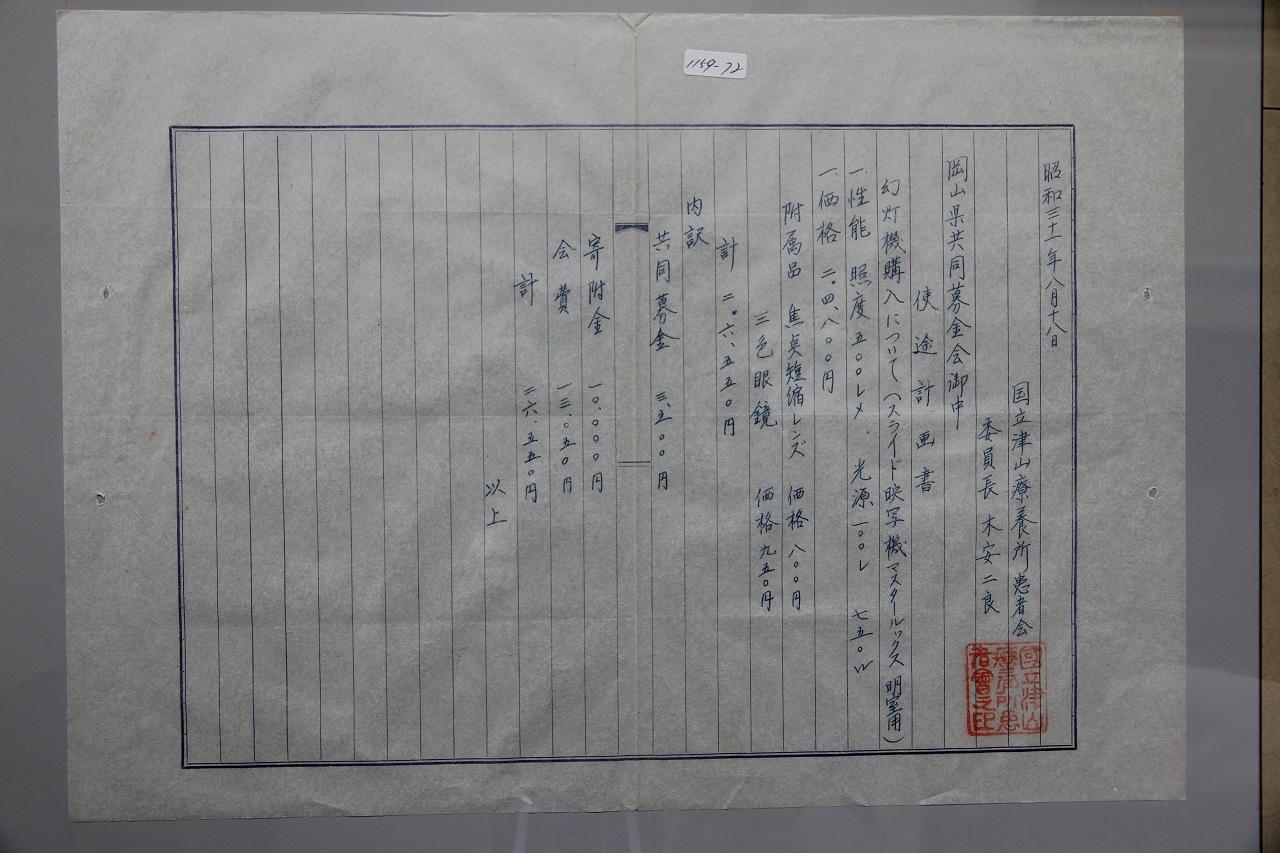 1159-72
昭和三十一年八月十八日
国立津山療養所患者会
委員長 木安二良
國立津山療養所患者會之印
岡山県共同募金会御中
使途計画書
幻灯機購入について(スライド映写機マスタールックス 明室用)
一.性能 照度 五〇〇レメ.光源 一〇〇レ 七五〇W
一.価格 二.四、八〇〇円
附属品 焦点短縮レンズ 価格 八〇〇円
三色眼鏡 価格 九五〇円
計 二.六、五五〇円
内訳
共同募金 三、五〇〇円
寄附金 一〇、〇〇〇円
会費 一三、〇五〇円
計 二六、五五〇円
以上